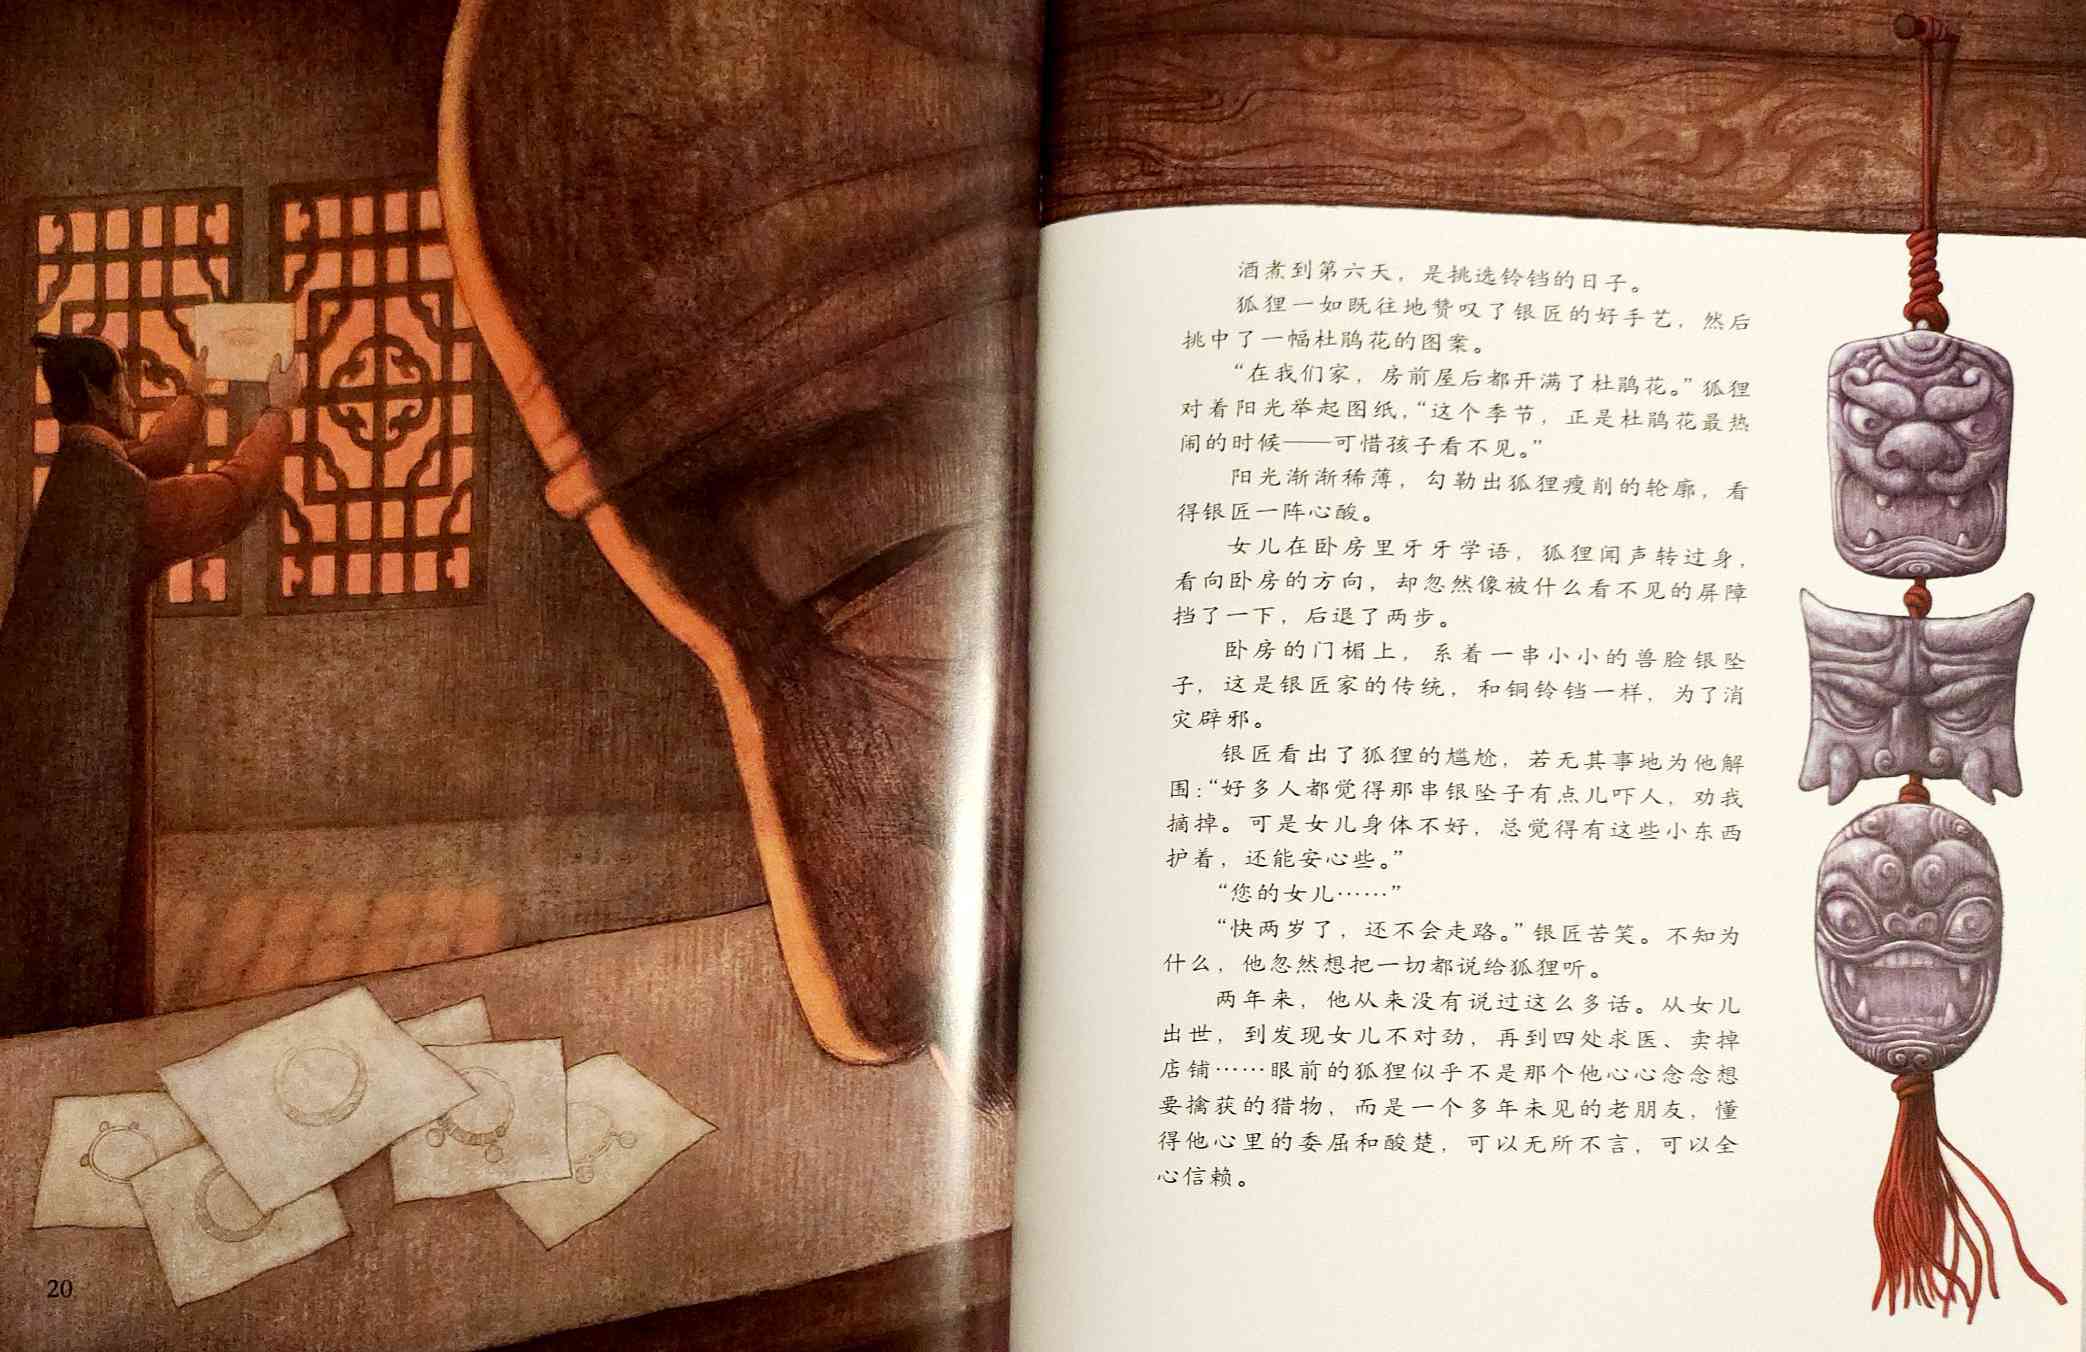 酒煮到第六天，是挑选铃铛的日子。
狐狸一如既往地赞叹了银匠的好手艺，然后
挑中了一幅杜鹃花的图案。
“在我们家，房前屋后都开满了杜鹃花。”狐狸
对着阳光举起图纸，“这个季节，正是杜鹃花最热
闹的时候——可惜孩子看不见。”
阳光渐渐稀薄，勾勒出狐狸瘦削的轮廓，看
得银匠一阵心酸。
女儿在卧房里牙牙学语，狐狸闻声转过身，
看向卧房的方向，却忽然像被什么看不见的屏障
挡了一下，后退了两步。
卧房的门楣上，系着一串小小的兽脸银坠
子，这是银匠家的传统，和铜铃铛一样，为了消
灾辟邪。
银匠看出了狐狸的尴尬，若无其事地为他解
围：“好多人都觉得那串银坠子有点儿吓人，劝我
摘掉。可是女儿身体不好，总觉得有这些小东西
护着，还能安心些。”
“您的女儿……”
“快两岁了，还不会走路。”银匠苦笑。不知为
什么，他忽然想把一切都说给狐狸听。
两年来，他从来没有说过这么多话。从女儿
出世，到发现女儿不对劲，再到四处求医、卖掉
店铺……眼前的狐狸似乎不是那个他心心念念想
要擒获的猎物，而是一个多年未见的老朋友，懂
得他心里的委屈和酸楚，可以无所不言，可以全
心信赖。
20